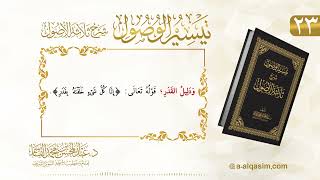 ٢٣
تيسير الوصول شرح ثلاثة الأصول
وَدَلِيلُ القَدَرِ؛ قَوْلُهُ تَعَالَى: ﴿إِنَّا كُلَّ شَيْءٍ خَلَقْنَاهُ بِقَدَرٍ﴾
تيسير الوصول
شرح
ثلاثة الأصول
د. عبد المحسن بن محمد القاسم
a-alqasim.com